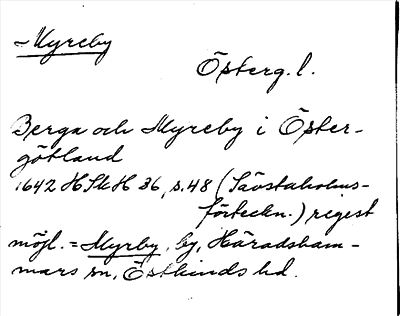 ~ Myreby
Österg.l.
Berga och Myreby i Öster-
götland
1642 HSkH 36, s.48 (Sävstaholms-
förteckn.) regest
möjl. = Myrby, by, Häradsham-
mars sn, Östkinds hd.